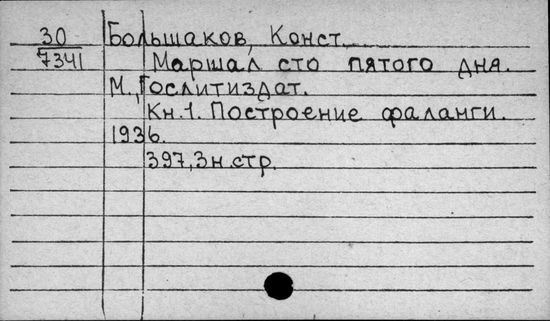 30 Большаков, Конст.
7341 Маршал сто пятого дня.
М., Гослитиздат.
Кн.1. Построение фаланги.
1936.
397,3н.стр.